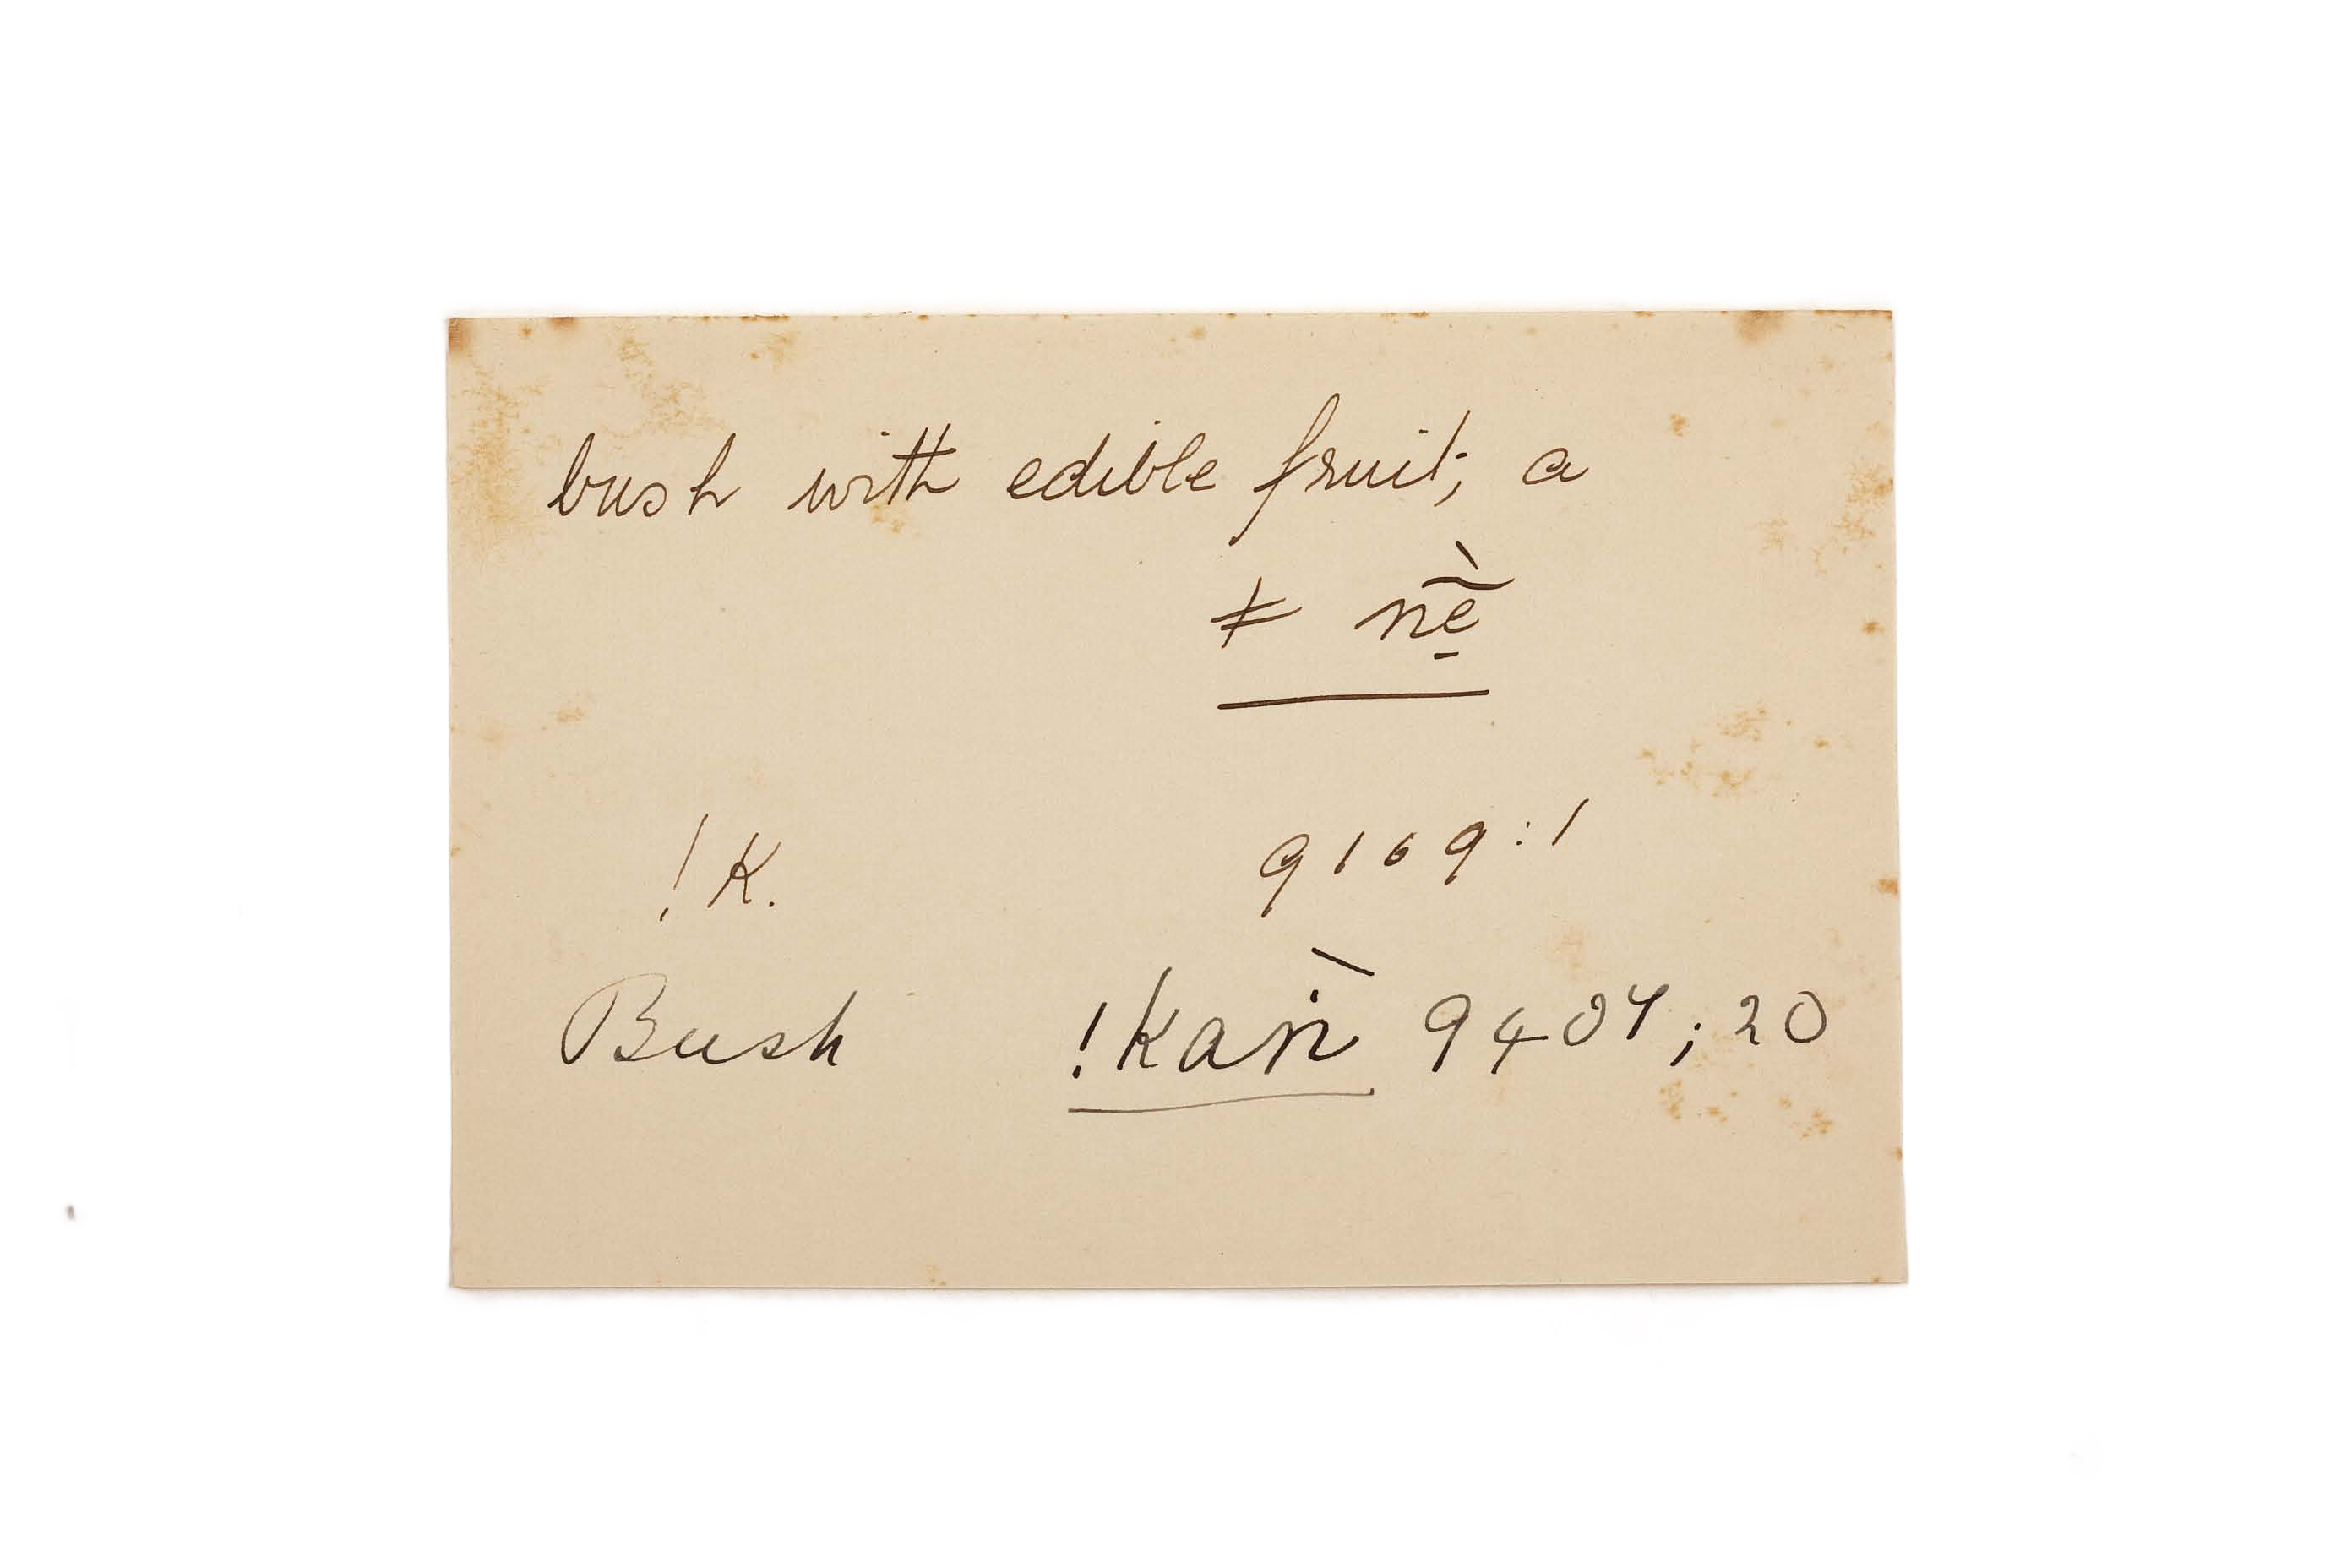 bush with edible fruit; a
ǂ nẽ̠̀
!K. 9169:1
Bush !kaṅ̀ 9407; 20